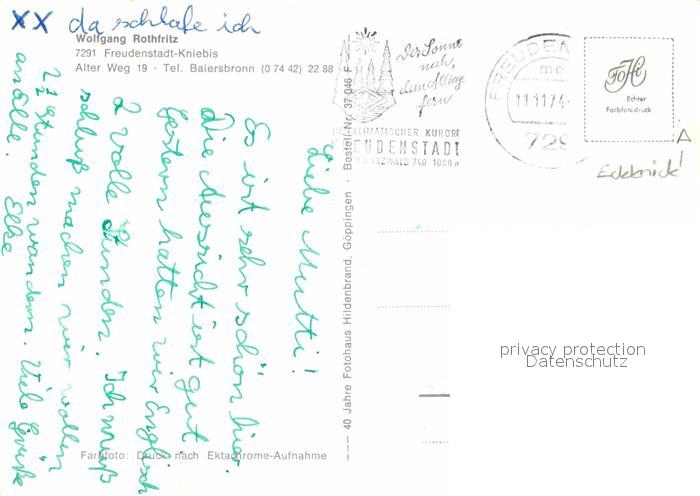 XX da schlafe ich
Wolfgang Rothfritz
7291 Freudenstadt-Kniebis
Alter Weg 19 · Tel. Baiersbronn (0 74 42) 22 88
Liebe Mutti!
Es ist sehr schön hier.
Die Aussicht ist gut
Gestern hatten wir Englisch
2 volle Stunden. Ich muß
schluß machen wir wollen
2½ stunden wandern. Viele Grüße
anölle. Elke
Farbfoto: Druck nach Ektachrome-Aufnahme
40 Jahre Fotohaus Hildenbrand, Göppingen · Bestell-Nr. 37 046 F
Der Sonne
nah,
dem Alltag
fern
HEILKLIMATISCHER KURORT
FREUDENSTADT
SCHWARZWALD 740 1000 m
FREUDEN
11.11.74
729
FoHi
Echter
Farbfotodruck
Eckknick!
privacy protection
Datenschutz